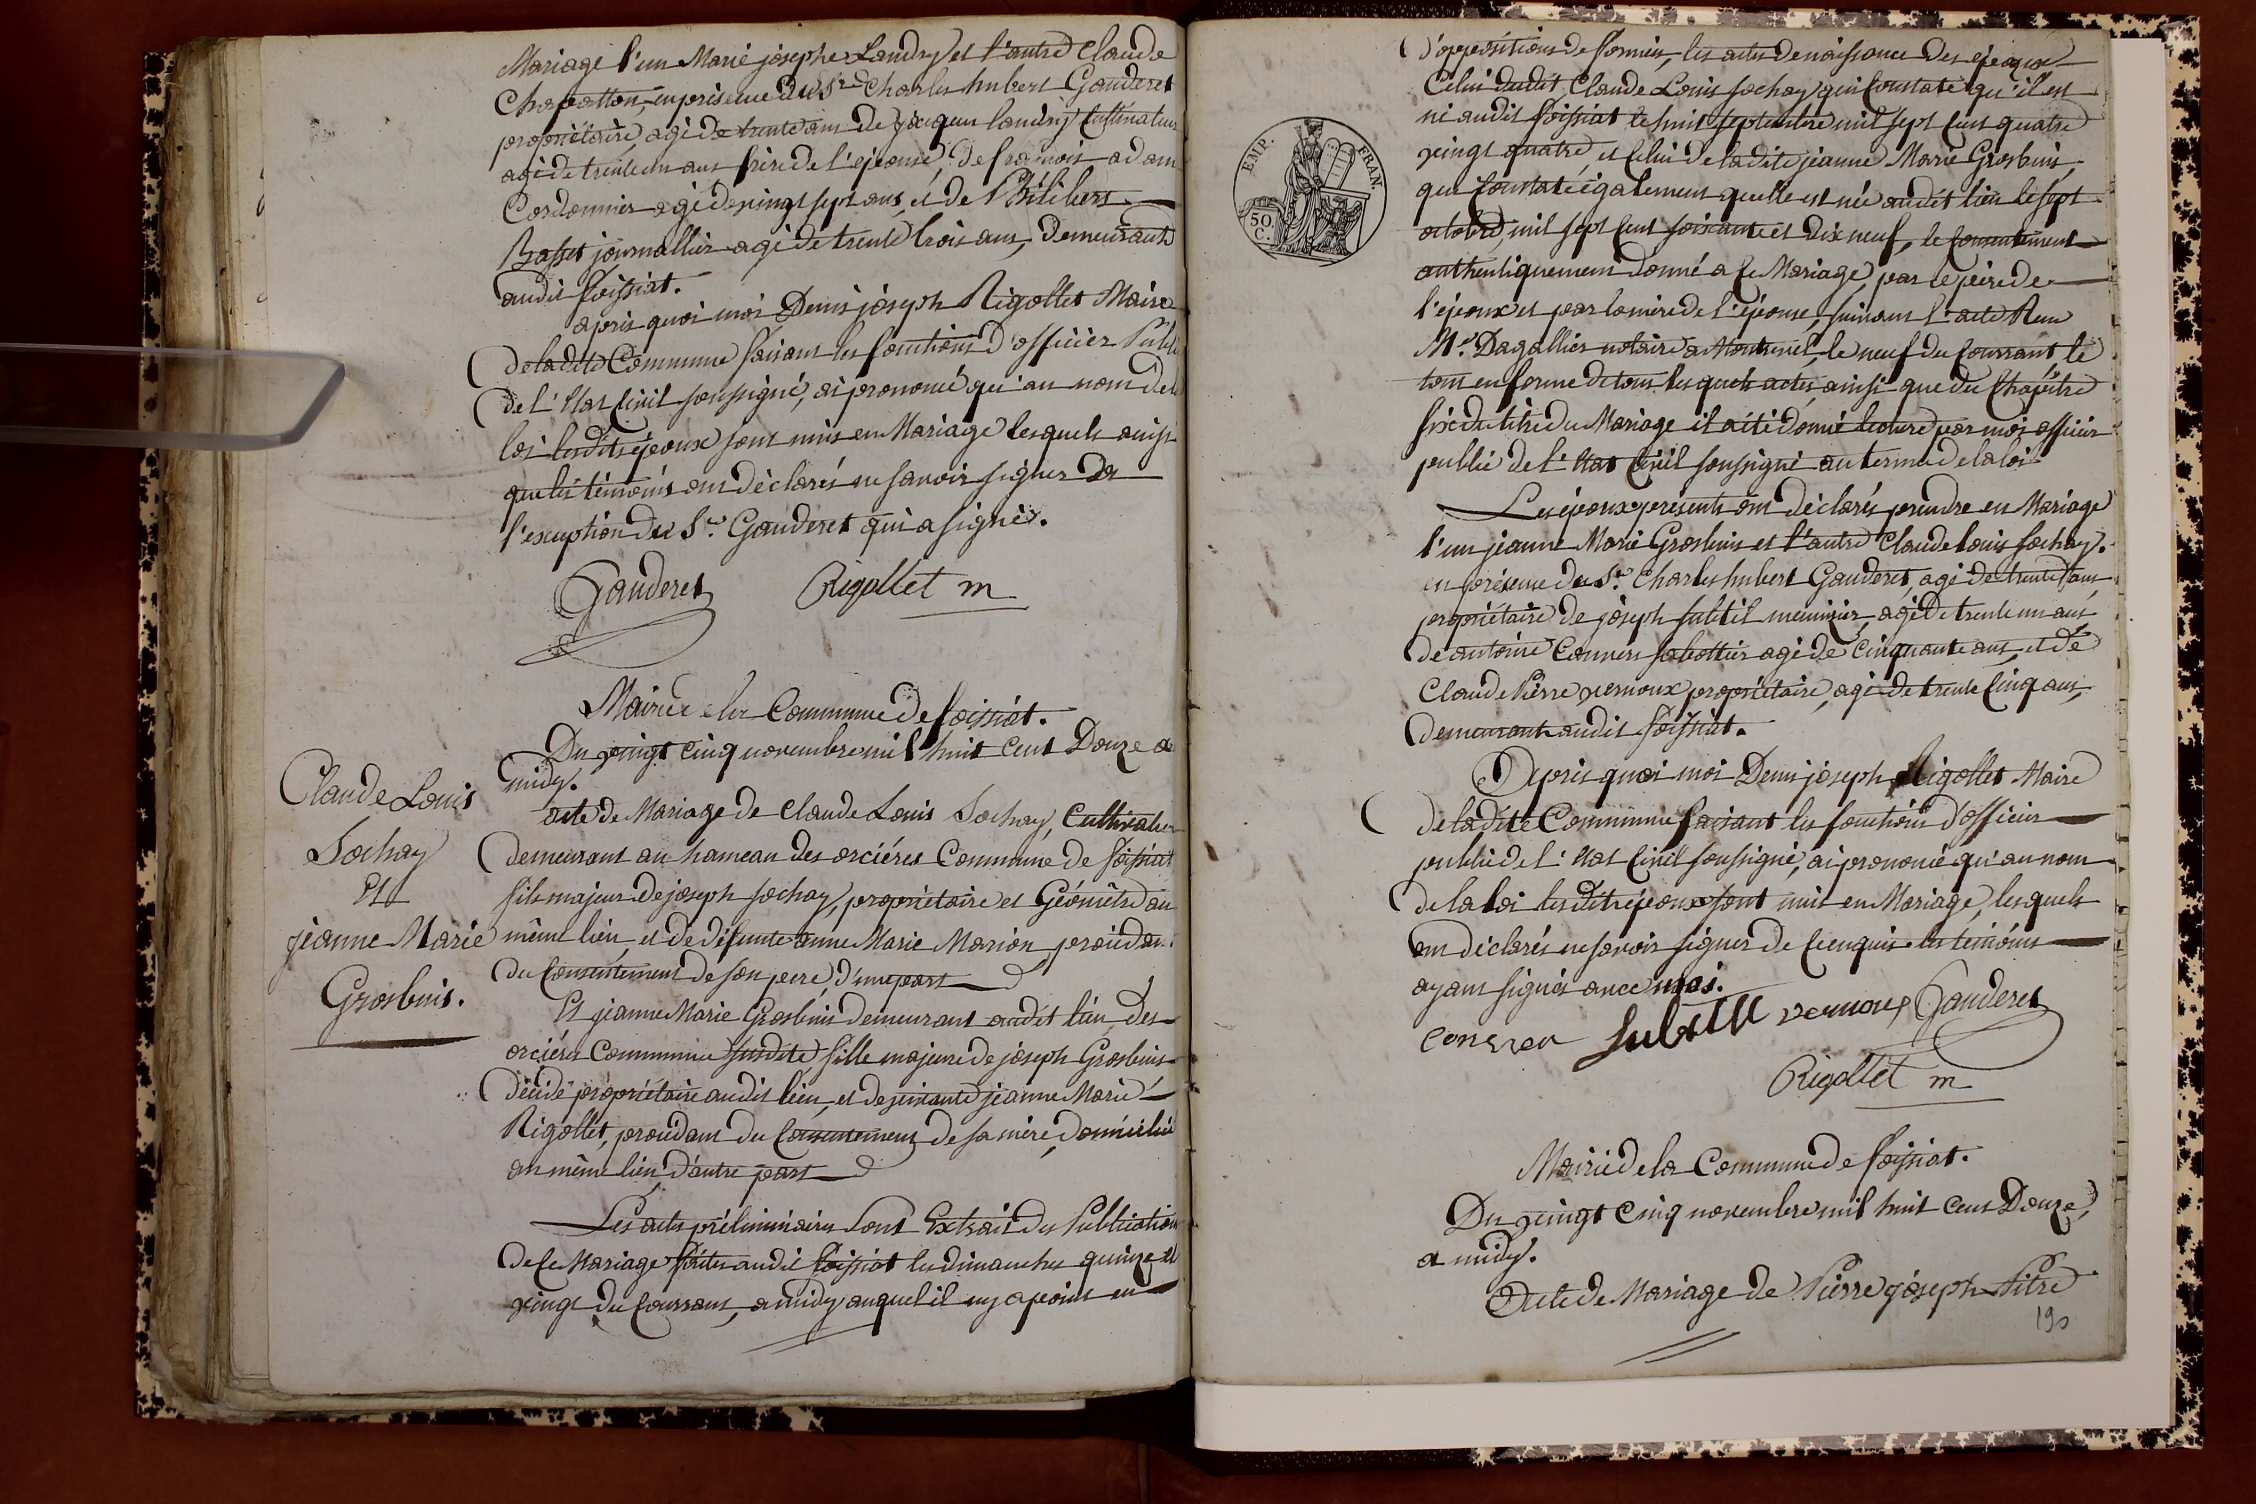 Mariage l'un Marie josephe Landry et l'autre Claude
Chapatton, en présence du Sr. Charles hubert Gauderet
propriétaire, agé de trente ans de jacques landry Cultivateur
agé de trente un ans frère de l'épouse, de françois adam
Cordonnier agé de vingt sept ans, et de Philibert
Basset journallier agé de trente trois ans, demeurants
audit foissiat.
apris quoi moi Denis joseph Rigollet Maire
de ladite Commune faisant les fonctions d'officier Public
de l'Etat Civil soussigné, ai prononcé qu'au nom de la
loi lesdits époux sont unis en Mariage lesquels ainsi
que les témoins ont déclarés ne savoir signer de
l'exception du Sr. Gauderet qui a signé.
Gauderet Rigollet m
Mairie de la Commune de foissiat.
Du vingt cinq novembre mil huit cent Douze a
midy.
Claude Louis
Sochay
Et
jeanne Marie
Grosbuis.
acte de Mariage de Claude Louis Sochay, Cultivateur
demeurant au hameau des orciéres Commune de foissiat
fils majeur de joseph sochay, propriétaire et Géométre au
même lieu, et de défunte anne Marie Marion, procédant
du Consentement de son pere, d'une part
Et jeanne Marie Grosbuis demeurant audit lieu des
orciéres Commune susdite, fille majeure de joseph Grosbuis
décédé propriétaire audit lieu, et de vivante jeanne Marie
Rigollet, procédant du Consentement de sa mère, domiciliée
au même lieu, d'autre part
Les actes préliminaires sont Extrait des Publications
de ce Mariage faites audit foissiat les dimanches quinze et
vingt du Courrant, a midy auquel il ny a point eu
EMP. FRAN.
50
C.
d'oppositions de formées, les actes de naissance des époux
Celui dudit Claude Louis sochay qui Constate qu'il est
né audit foissiat le huit septembre mil sept Cent quatre
vingt quatre, et Celui de ladite jeanne Marie Grosbuis,
qui Constate également quelle est née audit lieu le sept
octobre, mil sept Cent soixante et dix neuf, le Consentement
authentiquement donné a ce Mariage, par le père de
l'époux et par la mère de l'épouse, suivant l'acte Reçu
Me. Dagallier notaire a Montrevel, le neuf du Courrant le
tout en forme de tous lesquels actes, ainsi que du Chapitre
six du titre du Mariage il a été donné lecture par moi officier
public de l'Etat Civil soussigné au terme de la loi
Les époux présents ont déclarés prendre en Mariage
l'un jeanne Marie Grosbuis et l'autre Claude Louis sochay.
en présence du Sr. Charles hubert Gauderet, agé de trente ans,
propriétaire de joseph subtil meunier, agé de trente un ans
de antoine Convers sabottier agé de Cinquante ans, et de
Claude Pierre vernoux propriétaire, agé de trente Cinq ans,
demeurant audit foissiat.
Apris quoi moi Denis joseph Rigollet Maire
de ladite Commune faisant les fonctions d'officier
public de l'Etat Civil soussigné, ai prononcé qu'au nom
de la loi lesdits époux sont unis en Mariage, lesquels
ont déclarés ne savoir signer de ce enquis les témoins
ayant signés avec moi.
Conver Subtil vernoux Gauderet
Rigollet m
Mairie de la Commune de foissiat.
Du vingt Cinq novembre mil huit Cent Douze,
a midy.
Acte de Mariage de Pierre joseph Pitre
190